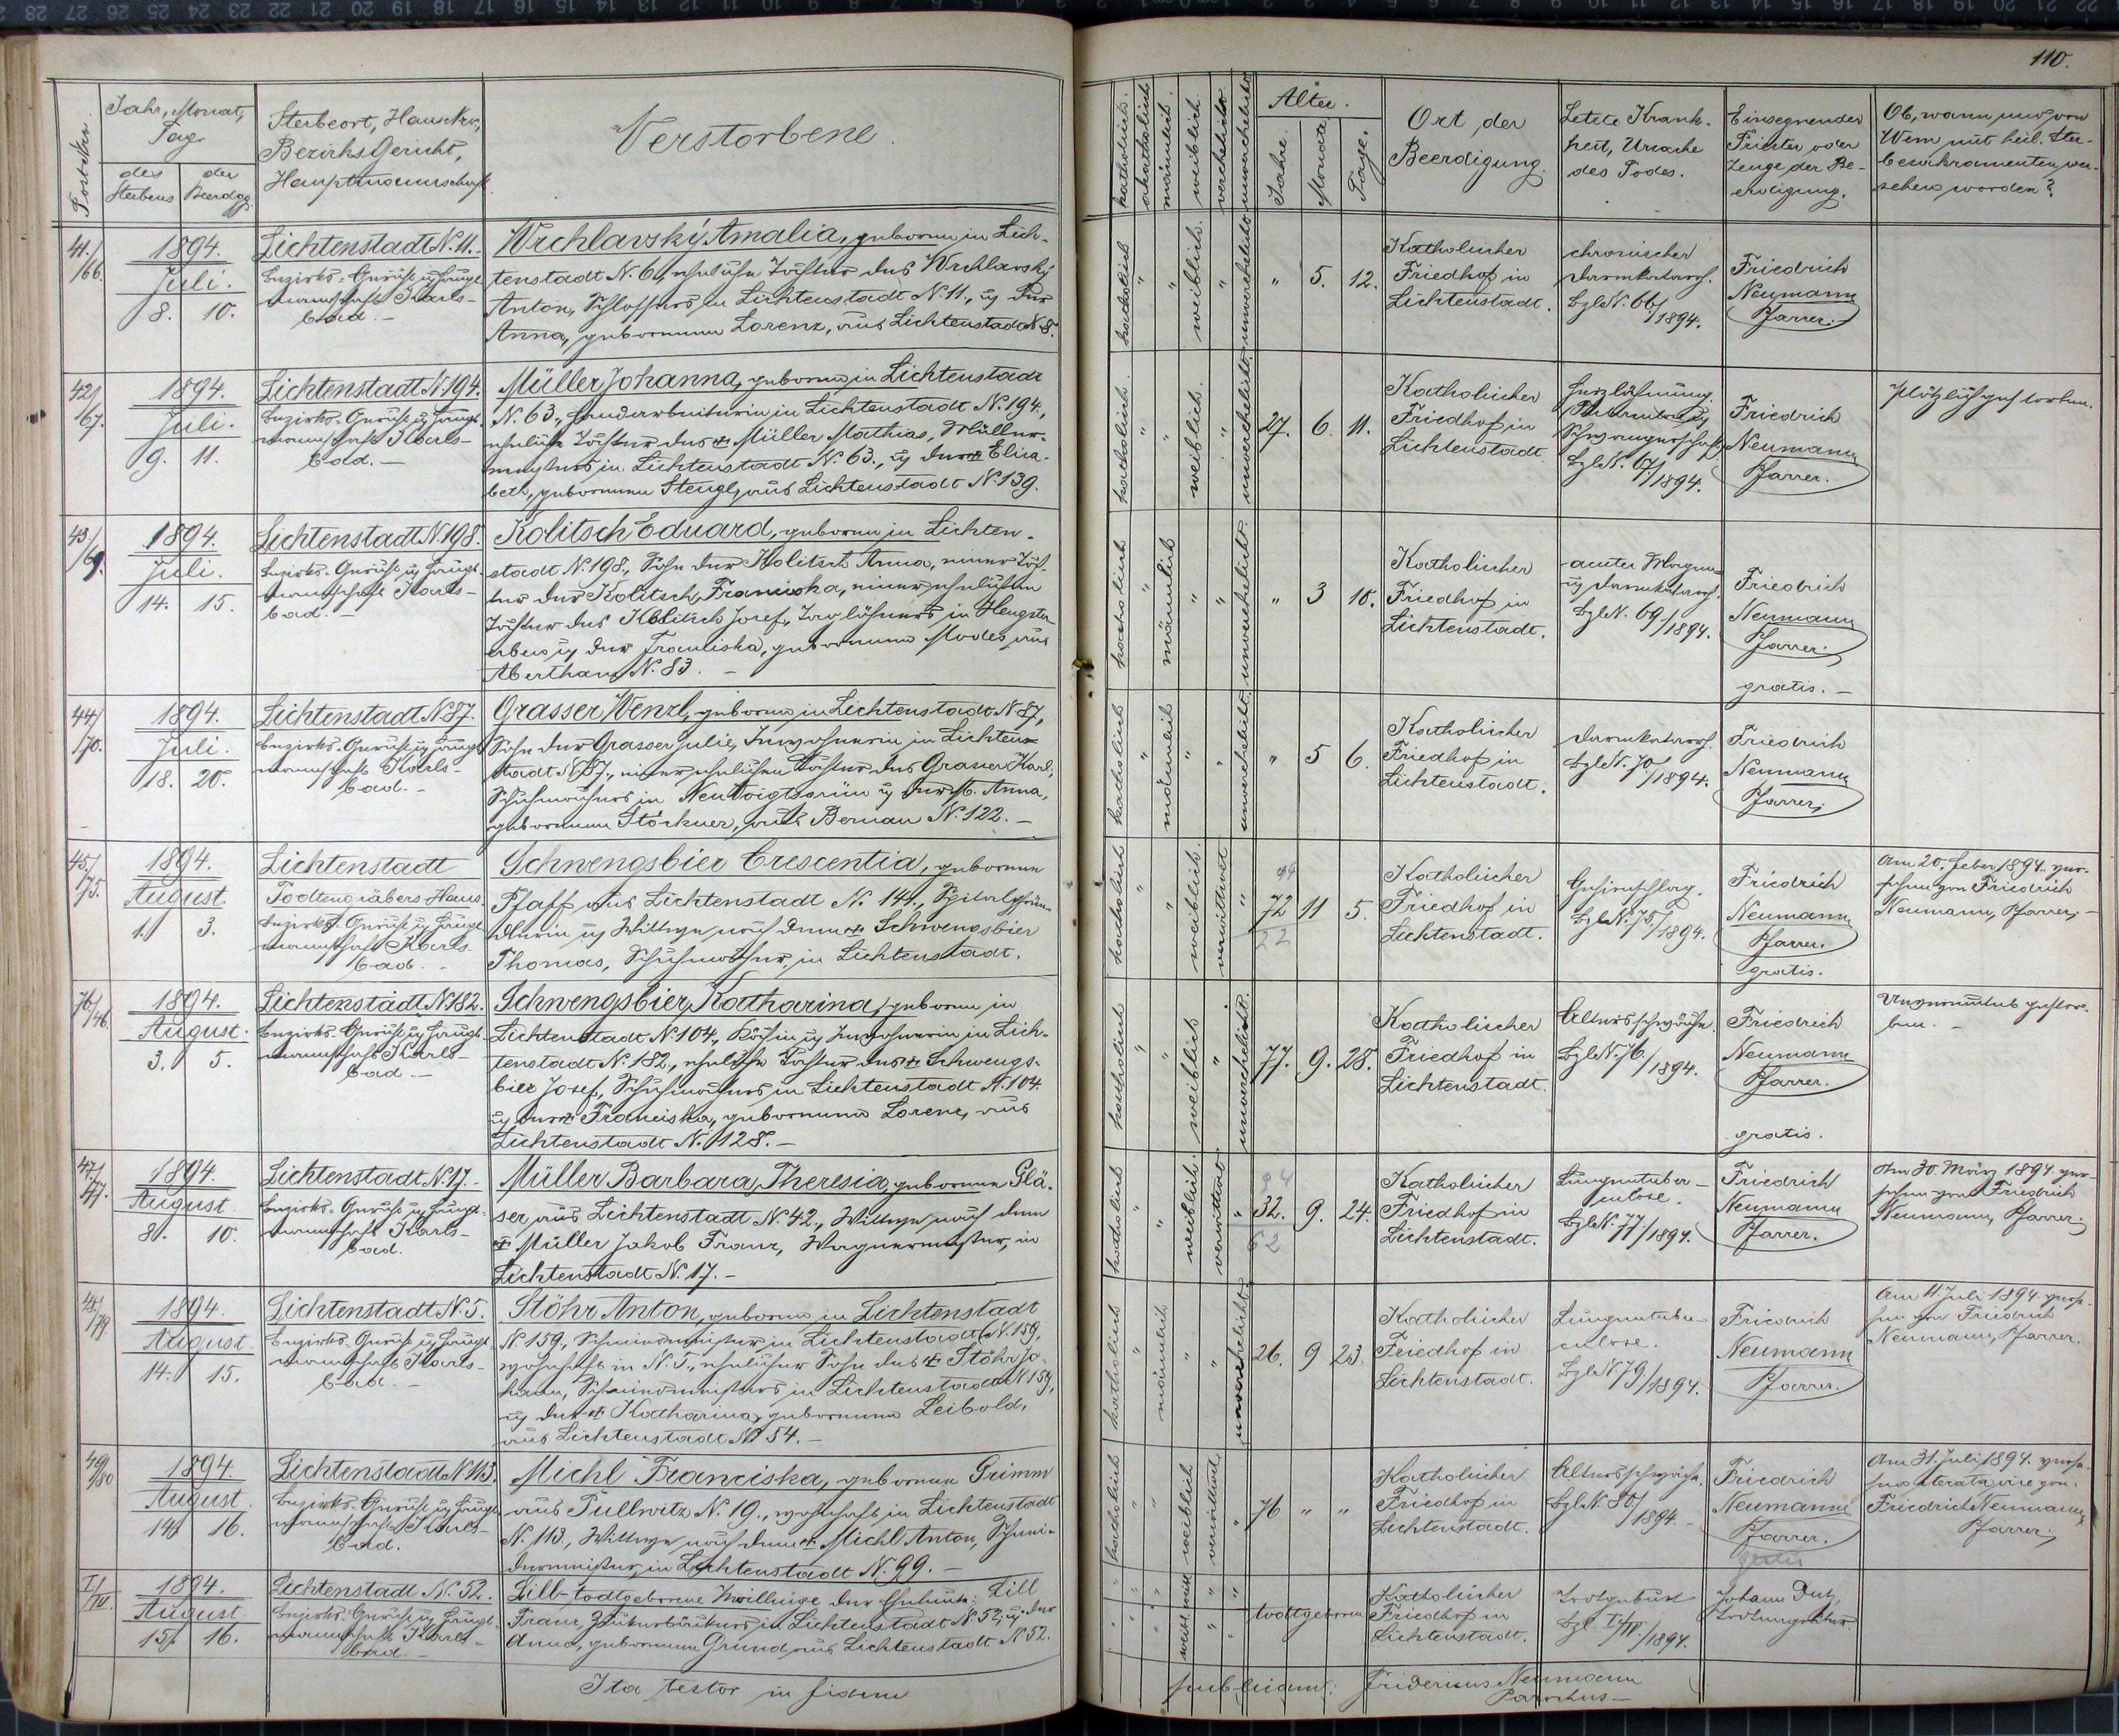 110.
Post-Nro.
Jahr, Monat,
Tag
des
Sterbens
der
Beerdgg.
Sterbeort, Haus Nro,
Bezirks Gericht,
Hauptmannschaft.
Verstorbene
katholisch.
akatholisch
männlich.
weiblich.
verehelicht
unverehelicht
Alter.
Jahre.
Monate
Tage.
Ort der
Beerdigung.
Letzte Krank-
heit, Ursache
des Todes.
Einsegnender
Priester oder
Zeuge der Be-
erdigung.
Ob, wann und von
Wem mit heil. Ster-
besakramenten ver-
sehen worden?
41./66.
1894.
Juli.
8. 10.
Lichtenstadt N. 11.
Bezirks-Gericht u Haupt-
mannschaft Karls-
bad.-
Wrchlavský Amalia, geboren in Lich-
tenstadt N. 6, eheliche Tochter des Wrchlavský
Anton, Schlossers in Lichtenstadt N. 11., u der
Anna, geborenen Lorenz, aus Lichtenstadt N 8.
katholisch " " weiblich. " unverehelicht
" 5. 12.
Katholischer
Friedhof in
Lichtenstadt.
chronischer
Darmkatarrh.
BzlN. 66/1894.
Friedrich
Neumann
Pfarrer.
42/67.
1894.
Juli.
9. 11.
Lichtenstadt N. 194.
Bezirks-Gericht u Haupt-
mannschaft Karls-
bad.-
Müller Johanna, geboren in Lichtenstadt
N. 63., Handarbeiterin in Lichtenstadt N. 194.,
eheliche Tochter des + Müller Mathias, Müller-
meisters in Lichtenstadt N. 63., u der + Elisa-
beth, geborenen Stengl, aus Lichtenstadt N. 139.
katholisch. " " weiblich. " unverehelicht.
27. 6. 11.
Katholischer
Friedhof in
Lichtenstadt
Herzlähmung.
Schwangerschaft
BzlN. 67/1894.
Friedrich
Neumann
Pfarrer.
Plötzlich gestorben.
43/69.
1894.
Juli.
14. 15.
Lichtenstadt N. 198.
Bezirks-Gericht u Haupt-
mannschaft Karls-
bad.-
Kolitsch Eduard, geboren in Lichten-
stadt N. 198., Sohn der Kolitsch Anna, einer Toch-
ter der Kolitsch, Franciska, einer ehelichen
Tochter des Kolitsch Josef, Taglöhners in Hengster
erben u der Franciska, geborenen Moder aus
Abertham N. 83. -
katholisch " männlich " " unverehelicht.
" 3 10.
Katholischer
Friedhof in
Lichtenstadt.
acuter Magen-
u Darmkatarrh.
BzlN. 69/1894.
Friedrich
Neumann
Pfarrer
gratis. -
44/70.
1894.
Juli.
18. 20.
Lichtenstadt N. 87.
Bezirks-Gericht u Haupt-
mannschaft Karls-
bad.-
Grasser Wenzl, geboren in Lichtenstadt N. 87,
Sohn der Grasser Julie, Inwohnerin in Lichten-
stadt N. 87., einer ehelichen Tochter des Grasser Karl,
Schuhmachers in Neu Voigtsgrün u der Anna,
geborenen Störkner, aus Bernau N. 122. -
katholisch " männlich " " unverehelicht.
" 5 6.
Katholischer
Friedhof in
Lichtenstadt.
Darmkatarrh.
BzlN. 70/1894.
Friedrich
Neumann
Pfarrer
45./75.
1894.
August.
1. 3.
Lichtenstadt
Todtengräbers Haus.
Bezirks-Gericht u Haupt-
mannschaft Karls-
bad.-
Schwengsbier Crescentia, geborene
Pfaff aus Lichtenstadt N. 144., Spitalpfründ-
lerin u Wittwe nach dem + Schwengsbier
Thomas, Schuhmacher, in Lichtenstadt.
katholisch " " weiblich. verwittwet "
94
72 11 5.
22
Katholischer
Friedhof in
Lichtenstadt.
Gehirnschlag.
BzlN. 75/1894.
Friedrich
Neumann
Pfarrer.
gratis.
Am 20. Feber 1894. ver-
sehen von Friedrich
Neumann, Pfarrer. -
76/46.
1894.
August.
3. 5.
Lichtenstadt N. 182.
Bezirks-Gericht u Haupt-
mannschaft Karls-
bad -
Schwengsbier Katharina, geboren in
Lichtenstadt N. 104., Köchin u Inwohnerin in Lich-
tenstadt N. 182., eheliche Tochter des + Schwengs-
bier Josef, Schuhmachers in Lichtenstadt N. 104.
u der + Franciska, geborenen Lorenz, aus
Lichtenstadt N. 128. -
katholisch " " weiblich " unverehelicht.
77. 9. 28.
Katholischer
Friedhof in
Lichtenstadt.
Altersschwäche.
BzlN. 76./1894.
Friedrich
Neumann
Pfarrer.
gratis.
Unvermuthet gestor-
ben. -
47/77.
1894.
August
8. 10.
Lichtenstadt N. 17.
Bezirks-Gericht u Haupt-
mannschaft Karls-
bad.
Müller Barbara, Theresia, geborene Glä-
ser aus Lichtenstadt N. 42., Wittwe nach dem
+ Müller Jakob Franz, Wagnermeister, in
Lichtenstadt N. 17. -
katholisch " " weiblich. verwittwet "
94
32. 9. 24.
62
Katholischer
Friedhof in
Lichtenstadt.
Lungentuber-
culose.
BzlN. 77/1894.
Friedrich
Neumann
Pfarrer.
Am 30. März 1894. ver-
sehen von Friedrich
Neumann, Pfarrer.
48/79
1894.
August.
14. 15.
Lichtenstadt N. 5.
Bezirks-Gericht u Haupt-
mannschaft Karls-
bad.-
Stöhr Anton, geboren in Lichtenstadt
N. 159, Schneidermeister in Lichtenstadt N. 159,
wohnhaft in N. 5., ehelicher Sohn des + Stöhr Jo-
hann, Schneidermeisters in Lichtenstadt N 159,
u der + Katharina, geborenen Leibold,
aus Lichtenstadt N 54. -
katholisch " männlich " " unverehelicht.
26. 9 23.
Katholischer
Friedhof in
Lichtenstadt.
Lungentuber-
culose.
BzlN 79/1894.
Friedrich
Neumann
Pfarrer.
Am 11. Juli 1894. verse-
hen von Friedrich
Neumann, Pfarrer.
49/80
1894.
August.
14. 16.
Lichtenstadt N. 113.
Bezirks-Gericht u Haupt-
mannschaft Karls-
bad.
Michl Franciska, geborene Grimm
aus Tullwitz N. 19., wohnhaft in Lichtenstadt
N. 113., Wittwe nach dem + Michl Anton, Schnei-
dermeister, in Lichtenstadt N. 99. -
katholisch " " weiblich verwittwet. "
76 " "
Katholischer
Friedhof in
Lichtenstadt.
Altersschwäche.
BzlN. 80/1894. -
Friedrich
Neumann
Pfarrer.
gratis
Am 31. Juli 1894. verse-
hen iterata vice von
Friedrich Neumann,
Pfarrer.
I/IV.
1894.
August.
15. 16.
Lichtenstadt N. 52.
Bezirks-Gericht u Haupt-
mannschaft Karls-
bad.-
Lill-todtgeborene Zwillinge der Eheleute: Lill
Franz, Zuckerbäckers in Lichtenstadt N. 52, u der
Anna, geborenen Grund, aus Lichtenstadt N 52.
todtgeboren
Katholischer
Friedhof in
Lichtenstadt.
Todtgeburt
Bzl. I/IV./1894.
Johann Dutz,
Todtengräber.
Ita testor in fidem
publicam: Fridericus Neumann
Parochus -